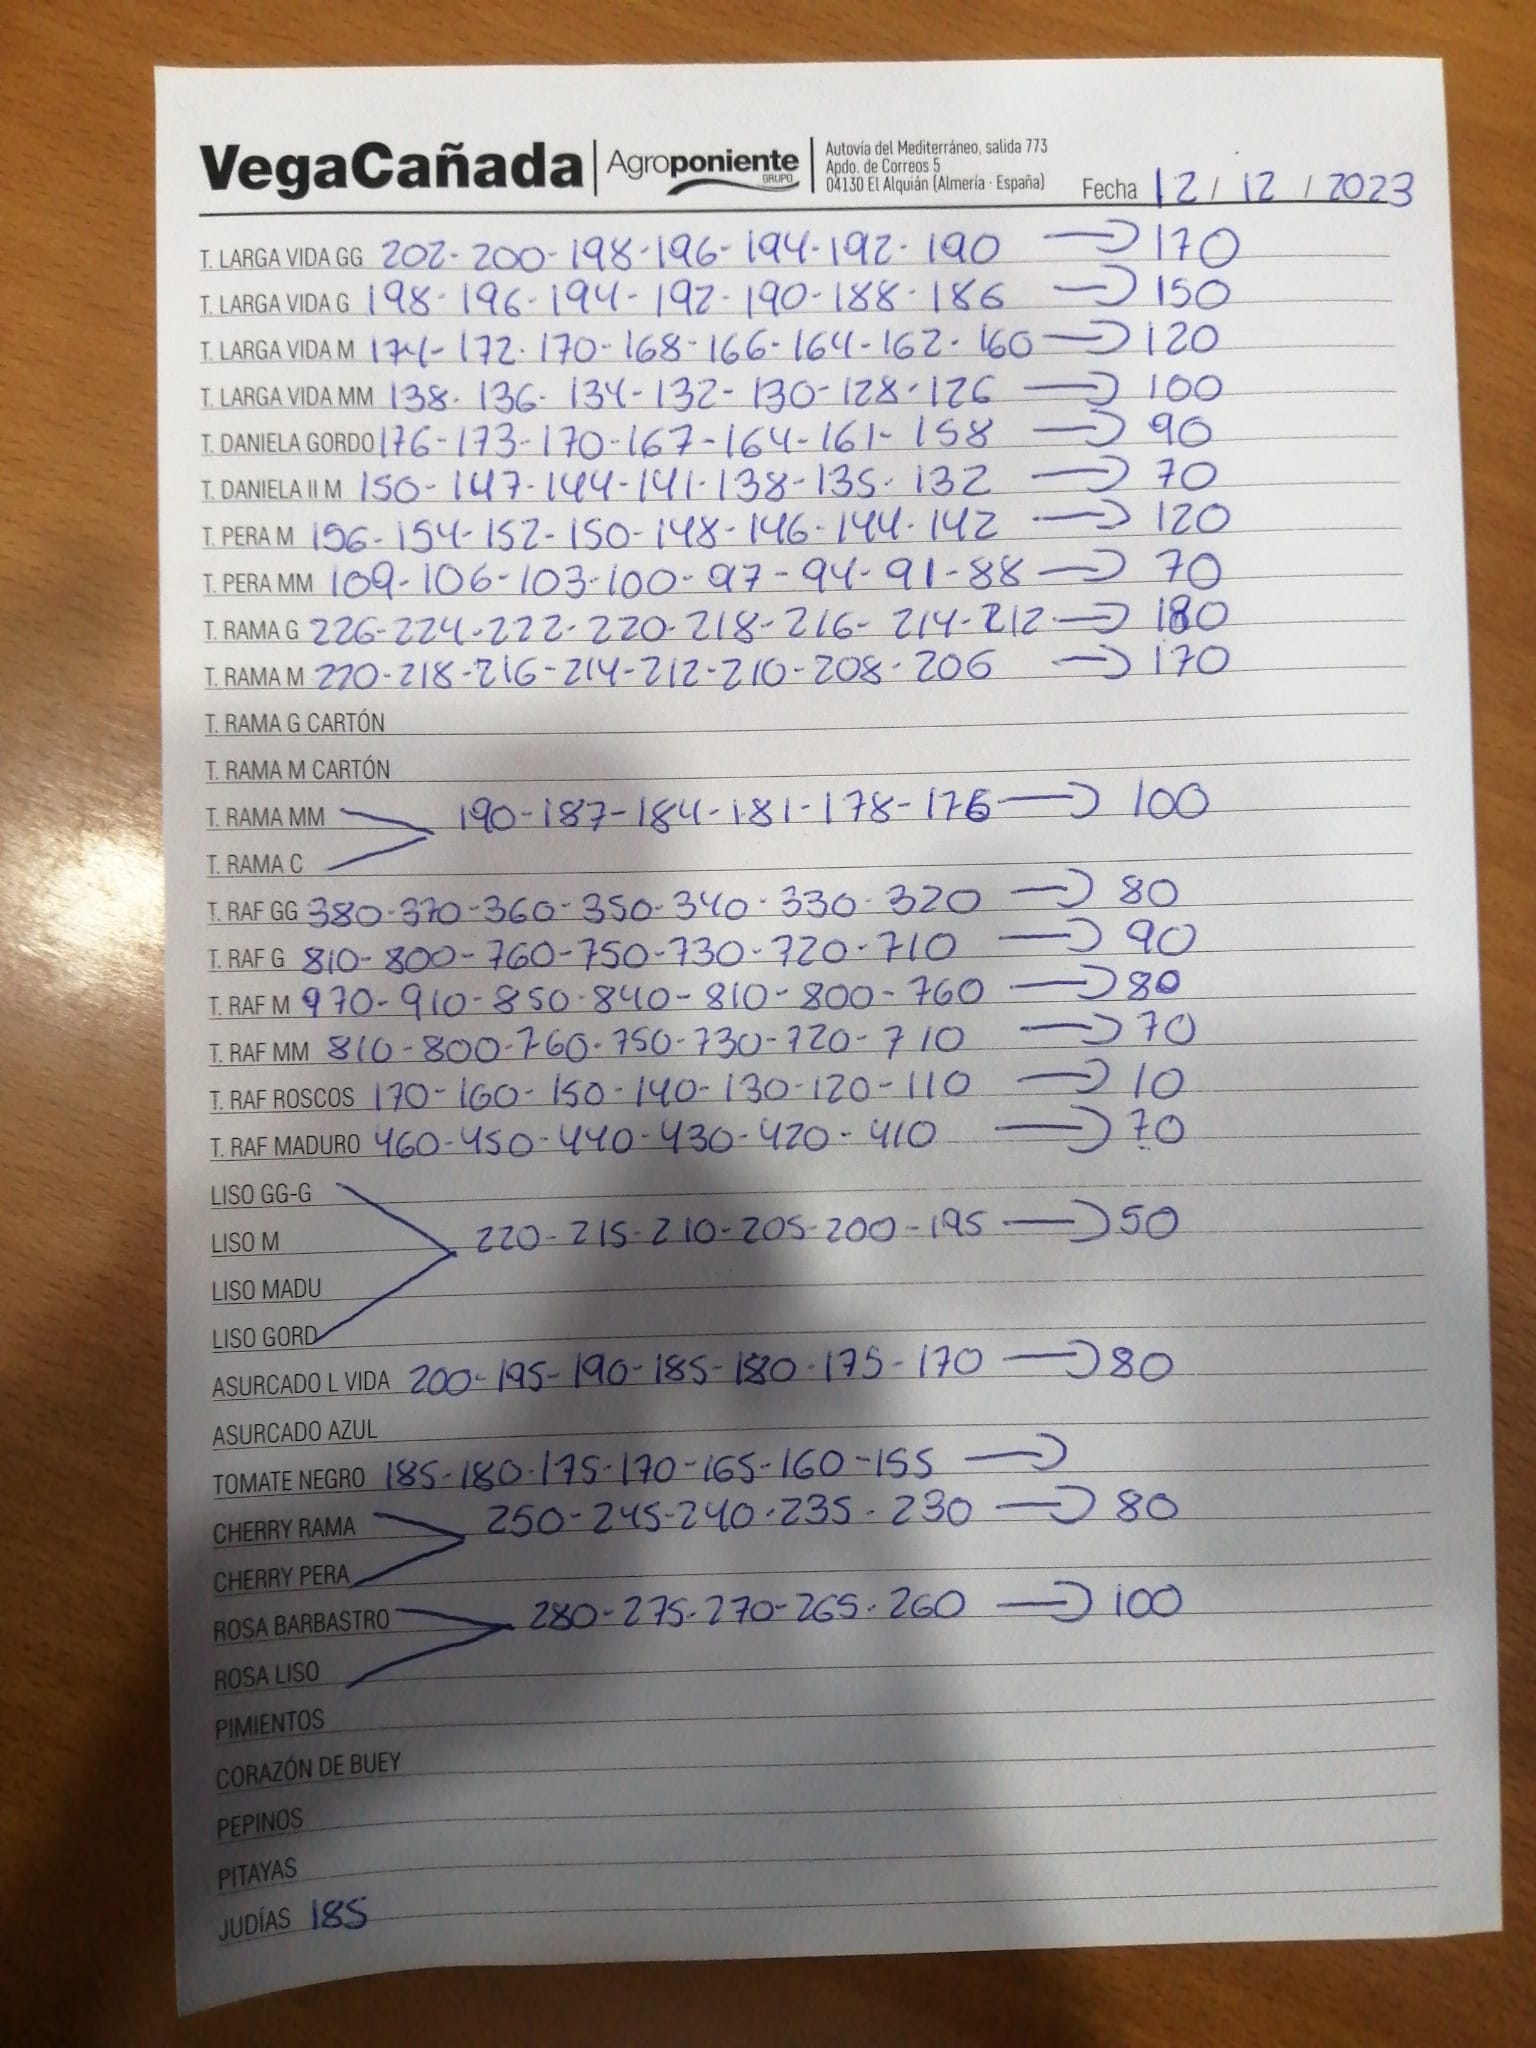 VegaCañada | Agroponiente GRUPO
Autovía del Mediterráneo, salida 773
Apdo. de Correos 5
04130 El Alquián (Almería · España)
Fecha 12 / 12 / 2023
T. LARGA VIDA GG 202-200-198-196-194-192-190 → 170
T. LARGA VIDA G 198-196-194-192-190-188-186 → 150
T. LARGA VIDA M 174-172-170-168-166-164-162-160 → 120
T. LARGA VIDA MM 138-136-134-132-130-128-126 → 100
T. DANIELA GORDO 176-173-170-167-164-161-158 → 90
T. DANIELA II M 150-147-144-141-138-135-132 → 70
T. PERA M 156-154-152-150-148-146-144-142 → 120
T. PERA MM 109-106-103-100-97-94-91-88 → 70
T. RAMA G 226-224-222-220-218-216-214-212 → 180
T. RAMA M 220-218-216-214-212-210-208-206 → 170
T. RAMA G CARTÓN
T. RAMA M CARTÓN
T. RAMA MM 190-187-184-181-178-176 → 100
T. RAMA C
T. RAF GG 380-370-360-350-340-330-320 → 80
T. RAF G 810-800-760-750-730-720-710 → 90
T. RAF M 970-910-850-840-810-800-760 → 80
T. RAF MM 810-800-760-750-730-720-710 → 70
T. RAF ROSCOS 170-160-150-140-130-120-110 → 10
T. RAF MADURO 460-450-440-430-420-410 → 70
LISO GG-G
LISO M 220-215-210-205-200-195 → 50
LISO MADU
LISO GORD
ASURCADO L VIDA 200-195-190-185-180-175-170 → 80
ASURCADO AZUL
TOMATE NEGRO 185-180-175-170-165-160-155 →
CHERRY RAMA 250-245-240-235-230 → 80
CHERRY PERA
ROSA BARBASTRO 280-275-270-265-260 → 100
ROSA LISO
PIMIENTOS
CORAZÓN DE BUEY
PEPINOS
PITAYAS
JUDÍAS 185